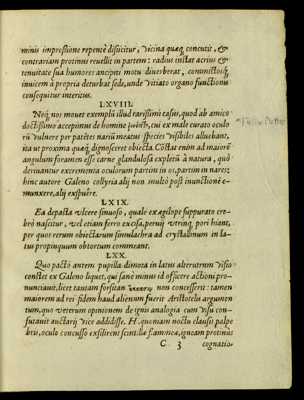 minis impressione repente dissicitur, vicina quæq; concutit, &
contrariam protinus reuellit in partem: radius instat acrius &
tenuitate sua humores ancipiti motu diuerberat, coniunctosq;
inuicem à propria deturbat sede, unde vitiato organo functionis
consequitur interitus.
LXVIII.
Neq; nos mouet exemplũ illud rarissimi casus, quod ab amico
doctissimo accepimus de homine cui ex male curato oculo
rũ vulnere per patētes narium meatus species visibiles allucebant,
ita ut proxima quæq; dignosceret obiecta. Cōstat enim ad maiorē
angulum foramen esse carne glandulosa expletũ à natura, quò
deriuantur excrementa oculorum partim in os, partim in nares:
hinc autore Galeno collyria alij non multò post inunctionē e-
munxere, alij expuêre.
LXIX.
Ea de pacta vlcere sinuoso, quale ex ægilope suppurato cre-
brò nascitur, vel etiam ferro excisa, peruij vtrinq; pori hiant,
per quos rerum obiectarum simulachra ad crystallinum in la-
tus propinquum obtortum commeant.
LXX.
Quo pacto autem pupilla dimota in latus alterutrum visio
constet ex Galeno liquet, qui sanè minus id officere actioni pro-
nunciauit, licet tantam forsitan non concesserit: tamen
maiorem ad rei fidem haud alienum fuerit Aristotelis argumen
tum, quo veterum opinionem de ignis analogia cum visu con-
futauit auctarij vice addidisse. H. quoniam noctu clausis palpe
bris, oculo concusso exsilirent scintillæ flammeæ, igneam protinus
C 3 cognatio-